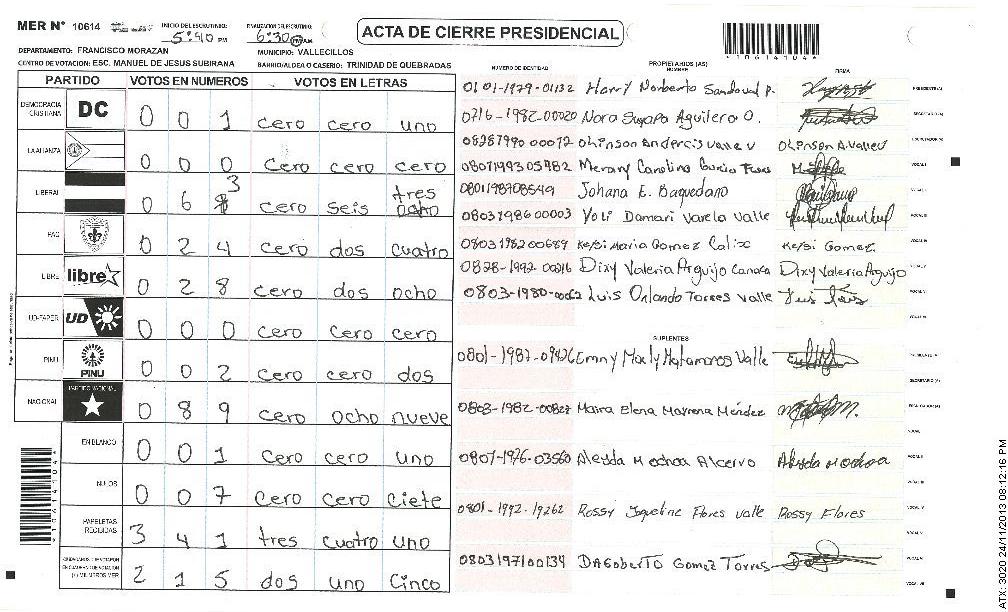 MER N° 10614 INICIO DEL ESCRUTINIO: 5:40 PM FINALIZACION DEL ESCRUTINIO: 6:30 PM ACTA DE CIERRE PRESIDENCIAL
*1061410 4*
DEPARTAMENTO: FRANCISCO MORAZAN MUNICIPIO: VALLECILLOS
CENTRO DE VOTACION: ESC. MANUEL DE JESUS SUBIRANA BARRIO/ALDEA O CASERIO: TRINIDAD DE QUEBRADAS
PARTIDO VOTOS EN NUMEROS VOTOS EN LETRAS
DEMOCRACIA CRISTIANA DC 0 0 1 cero cero uno
LA ALIANZA 0 0 0 cero cero cero
LIBERAL 0 6 8 3 cero seis ocho tres
PAC 0 2 4 cero dos cuatro
LIBRE libre 0 2 8 cero dos ocho
UD-FAPER UD 0 0 0 cero cero cero
PINU PINU 0 0 2 cero cero dos
NACIONAL PARTIDO NACIONAL 0 8 9 cero ocho nueve
EN BLANCO 0 0 1 cero cero uno
NULOS 0 0 7 cero cero ciete
PAPELETAS RECIBIDAS 3 4 1 tres cuatro uno
2 1 5 dos uno Cinco
NUMERO DE IDENTIDAD PROPIETARIOS (AS) NOMBRE FIRMA
0101-1979-01132 Harry Norberto Sandoval P. PRESIDENTE(A)
0716-1982-00020 Nora Suyapa Aguilera O. SECRETARIO(A)
Ohinson Andercis Valle V Ohinson A Valle V ESCRUTADOR(A)
0807199305982 Carolina VOCAL I
0801198708549 Johana E. Baquedano VOCAL II
0803198600003 Yoli Damari Varela Valle VOCAL III
0803198200689 Kelsi Maria Gomez Calix Kelsi Gomez. VOCAL IV
0828-1992-00216 Dixy Valeria Arguijo Dixy Valeria Arguijo VOCAL V
Luis Orlando Torres Valle VOCAL VI
VOCAL VII
SUPLENTES
0801-1987-09426 Matamoros Valle PRESIDENTE(A)
SECRETARIO(A)
0803-1982-00827 Maira Elena Mairena Méndez ESCRUTADOR(A)
VOCAL I
0807-1976-03560 VOCAL II
VOCAL III
0801-1992-19262 Rossy Flores Valle Rossy Flores VOCAL IV
0803197100134 Dagoberto Gomez Torres VOCAL VI
VOCAL VII
ATX-3020 24/11/2013 08:12:16 PM